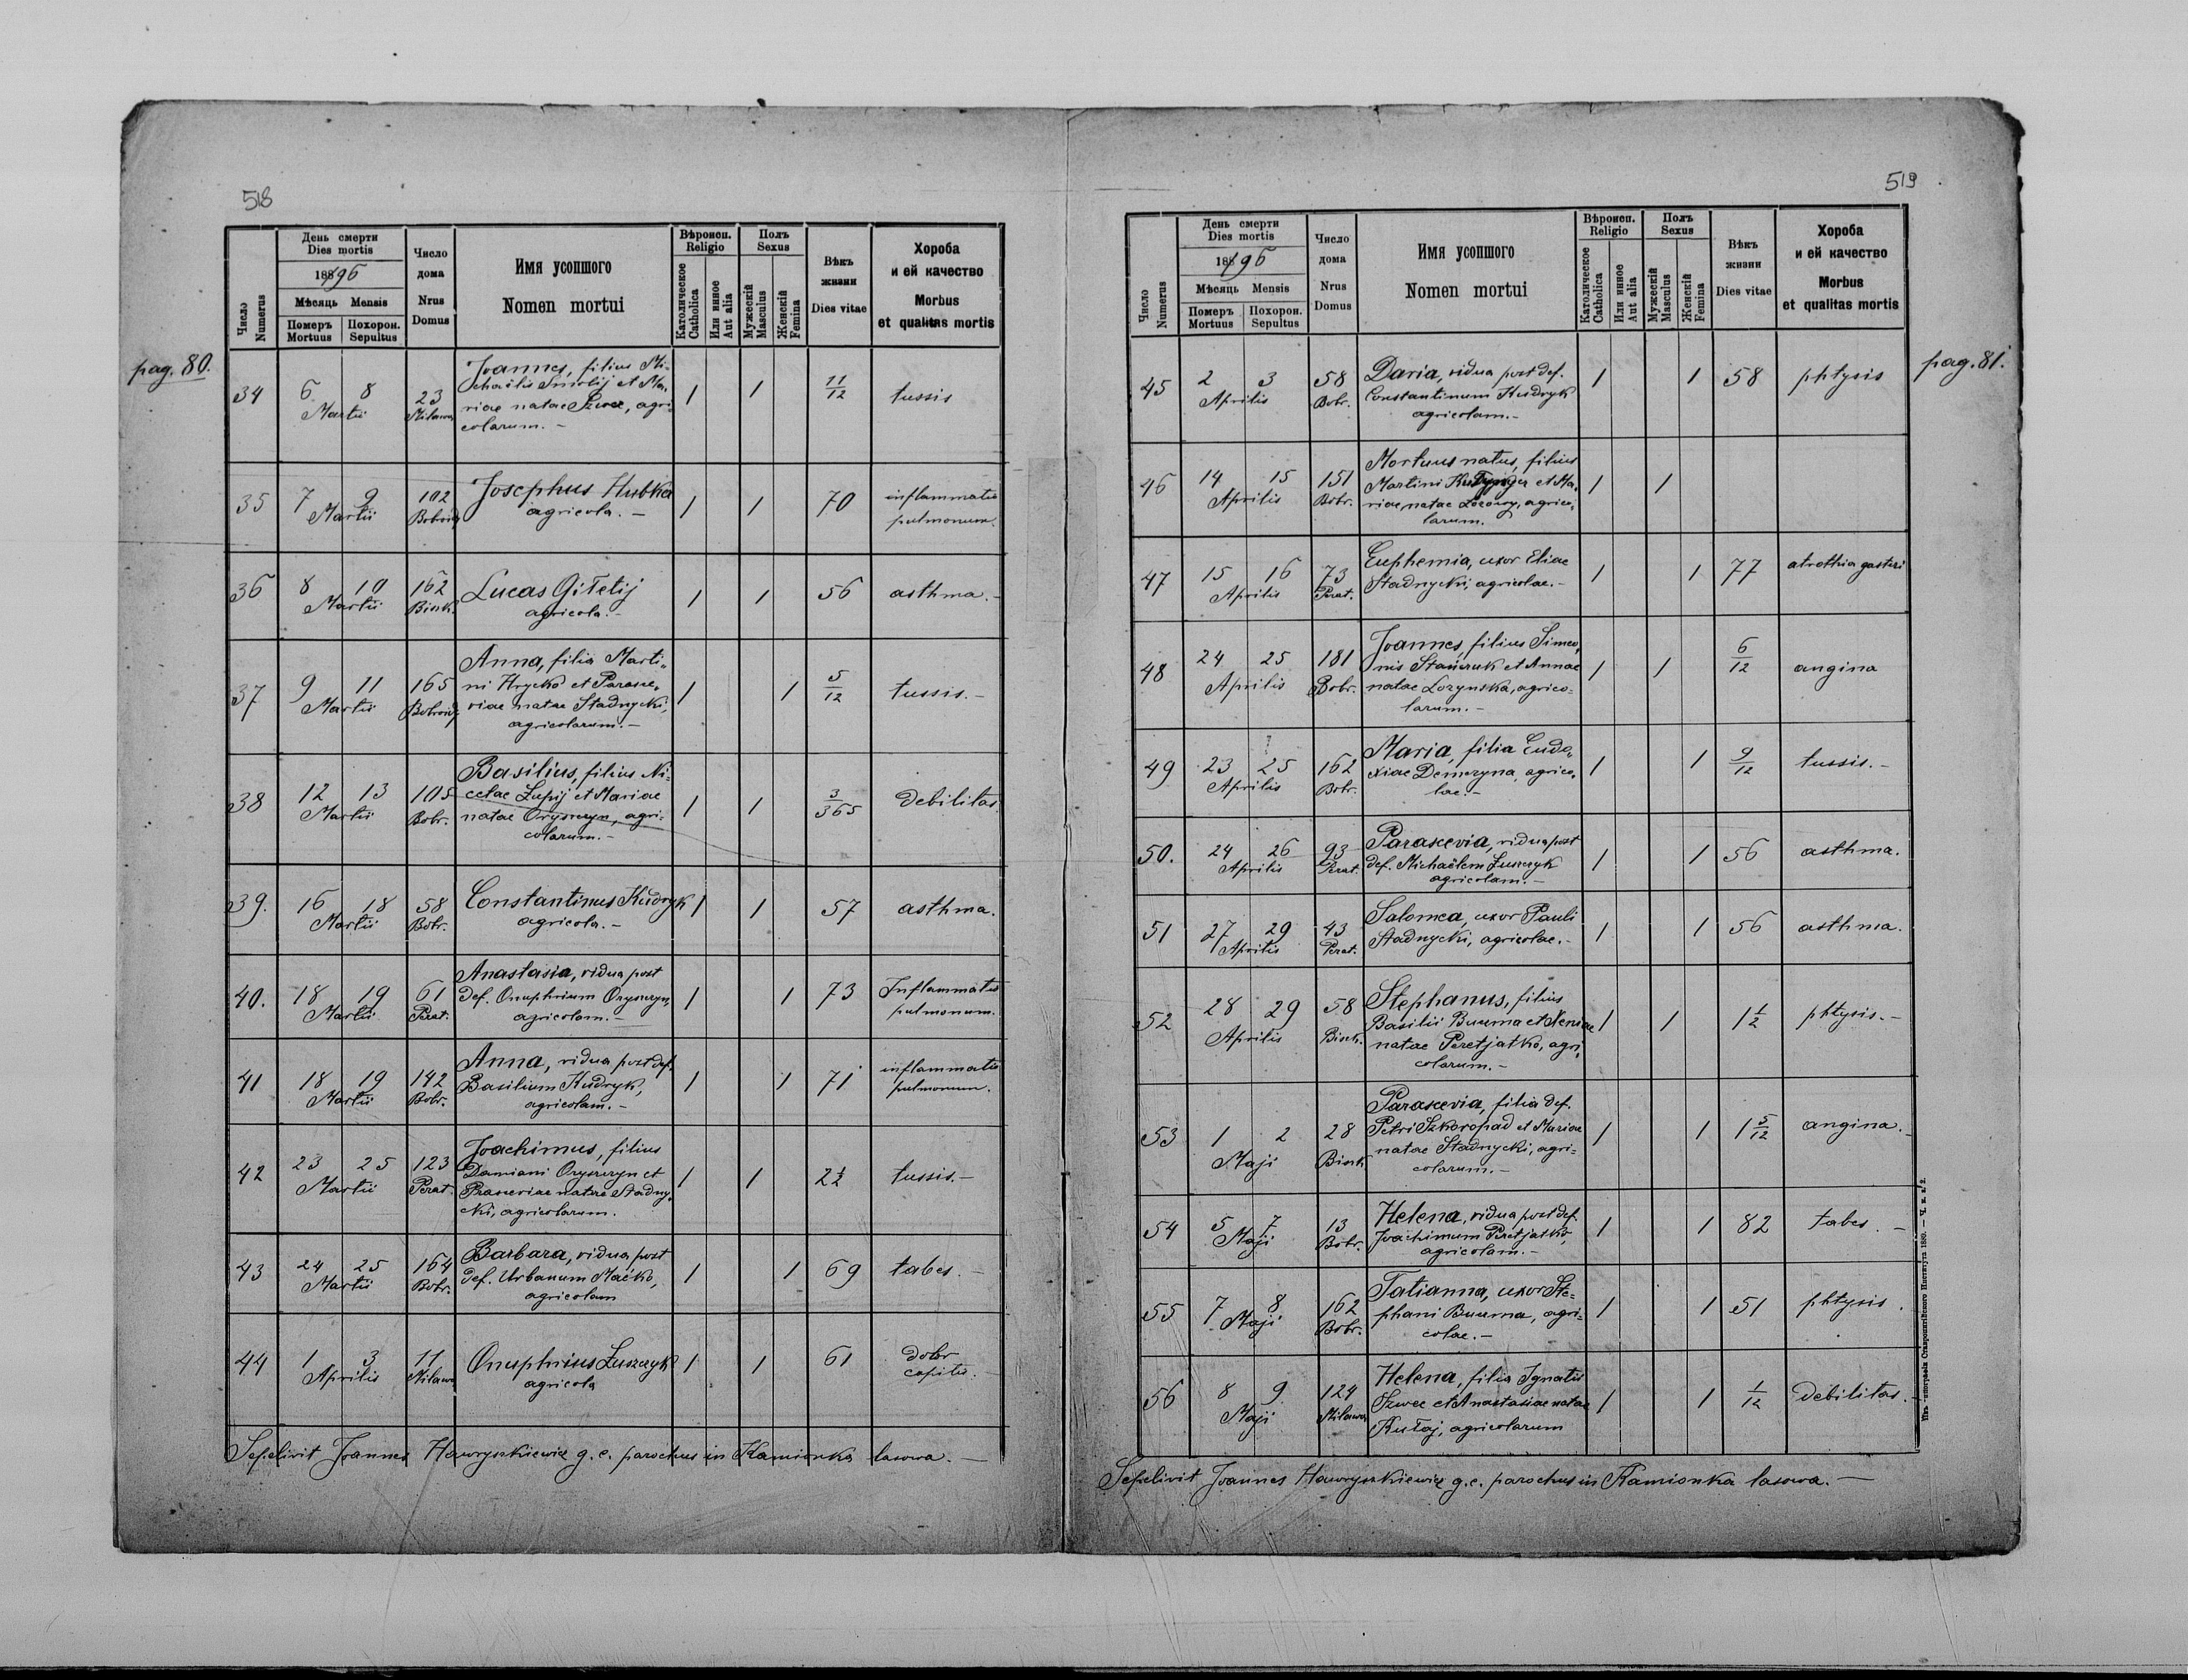 518
pag. 80.
Число
Numerus
День смерти
Dies mortis
1896
Мѣсяць Mensis
Померъ
Mortuus
Похорон.
Sepultus
Число
дома
Nrus
Domus
Имя усопшого
Nomen mortui
Вѣроисп.
Religio
Католическое
Catholica
Или инное
Aut alia
Полъ
Sexus
Мужескій
Masculus
Женскій
Femina
Вѣкъ
жизни
Dies vitae
Хороба
и ей качество
Morbus
et qualitas mortis
34 6 8 Martii 23 Milawa
Joannes, filius Mi-
chaëlis et Ma-
riae natae Szwec, agri-
colarum. -
1 1 11/12 tussis
35 7 9 Martii 102
Josephus Hubka
agricola. -
1 1 70 inflammatio
pulmonum.
36 8 10 Martii 162 Bisk.
Lucas
agricola. -
1 1 56 asthma. -
37 9 11 Martii 165
Anna, filia Marti-
ni Hryćko et Parasce-
viae natae Stadnycki,
agricolarum. -
1 1 5/12 tussis. -
38 12 13 Martii 105 Bobr.
Basilius, filius Ni-
cetae Łupij et Mariae
natae Oryszczyn, agri-
colarum. -
1 1 3/365 debilitas.
39. 16 18 Martii 58 Bobr.
Constantinus Kudryk
agricola. -
1 1 57 asthma.
40. 18 19 Martii 61 Perat.
Anastasia, vidua post
def. Onuphrium Oryszczyn,
agricolam. -
1 1 73 Inflammatio
pulmonum.
41 18 19 Martii 142 Bobr.
Anna, vidua post def.
Basilium Kudryk,
agricolam. -
1 1 71 inflammatio
pulmonum.
42 23 25 Martii 123 Perat.
Joachimus, filius
Damiani Oryszczyn et
Prasceviae natae Stadny-
cki, agricolarum.
1 1 2½ tussis. -
43 24 25 Martii 164 Bobr.
Barbara, vidua post
def. Urbanum Maćko,
agricolam
1 1 69 tabes. -
44 1 3 Aprilis 11 Milawa
Onuphrius Łuszczyk
agricola
1 1 61 dolor
capitis. -
Sepelivit Joannes Hawryszkiewicz g. c. parochus in Kamionka lasowa. -
519
pag. 81.
Число
Numerus
День смерти
Dies mortis
1896
Мѣсяць Mensis
Померъ
Mortuus
Похорон.
Sepultus
Число
дома
Nrus
Domus
Имя усопшого
Nomen mortui
Вѣроисп.
Religio
Католическое
Catholica
Или инное
Aut alia
Полъ
Sexus
Мужескій
Masculus
Женскій
Femina
Вѣкъ
жизни
Dies vitae
Хороба
и ей качество
Morbus
et qualitas mortis
45 2 3 Aprilis 58 Bobr.
Daria, vidua post def.
Constantinum Kudryk
agricolam. -
1 1 58 phtysis
46 14 15 Aprilis 151 Bobr.
Mortuus natus, filius
Martini et Ma-
riae, natae Łozowy, agrico-
larum.
1 1
47 15 16 Aprilis 73 Perat.
Euphemia, uxor Eliae
Stadnycki, agricolae. -
1 1 77 atrothia gastrii
48 24 25 Aprilis 181 Bobr.
Joannes, filius Simeo-
nis Stańczuk et Annae
natae Lozynska, agrico-
larum. -
1 1 6/12 angina
49 23 25 Aprilis 162 Bobr.
Maria, filia Eudo-
xiae Demczyna, agrico-
lae. -
1 1 9/12 tussis. -
50. 24 26 Aprilis 93 Perat.
Parascevia, vidua post
def. Michaëlem Łuszczyk
agricolam. -
1 1 56 asthma.
51 27 29 Aprilis 43 Perat.
Salomea, uxor Pauli
Stadnycki, agricolae. -
1 1 56 asthma.
52 28 29 Aprilis 58 Bisk.
Stephanus, filius
Basilii Buuma et Xeniae
natae Peretjatko, agri-
colarum. -
1 1 1½ phtysis. -
53 1 2 Maji 28 Bisk.
Parascevia, filia def.
Petri Szkoropad et Mariae
natae Stadnycki, agri-
colarum. -
1 1 1 5/12 angina. -
54 5 7 Maji 13 Bobr.
Helena, vidua post def.
Joachimum Peretjatko,
agricolam. -
1 1 82 tabes. -
55 7 8 Maji 162 Bobr.
Tatianna, uxor Ste-
phani Buuma, agri-
colae. -
1 1 51 phtysis.
56 8 9 Maji 124 Milawa
Helena, filia Ignatii
Szwec et Anastasiae natae
Kułaj, agricolarum
1 1 1/12 debilitas. -
Sepelivit Joannes Hawryszkiewicz g. c. parochus in Kamionka lasowa. -
Изъ типографіи Ставропигійского Института 1889. — Ч. н. к. 2.